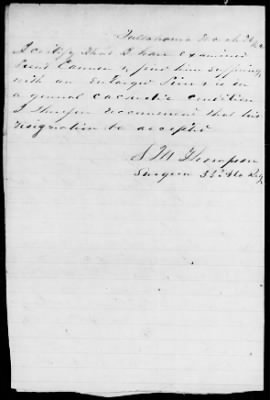 Tullahoma
I certify that I have examined
Lieut Cannon & find him suffering
with an Enlarged Liver & in
a general cachectic condition
I therefore recommend that his
resignation be accepted
S M Thompson
Surgeon Reg